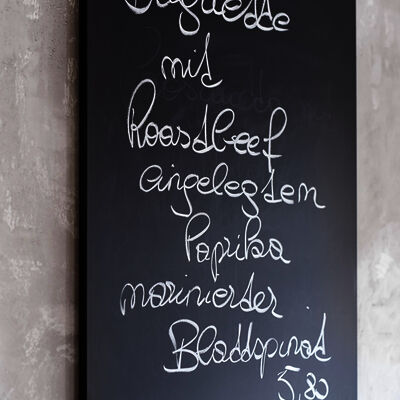 Baguette
mit
Roastbeef
eingelegtem
Paprika
marinierter
Blattspinat
5,80